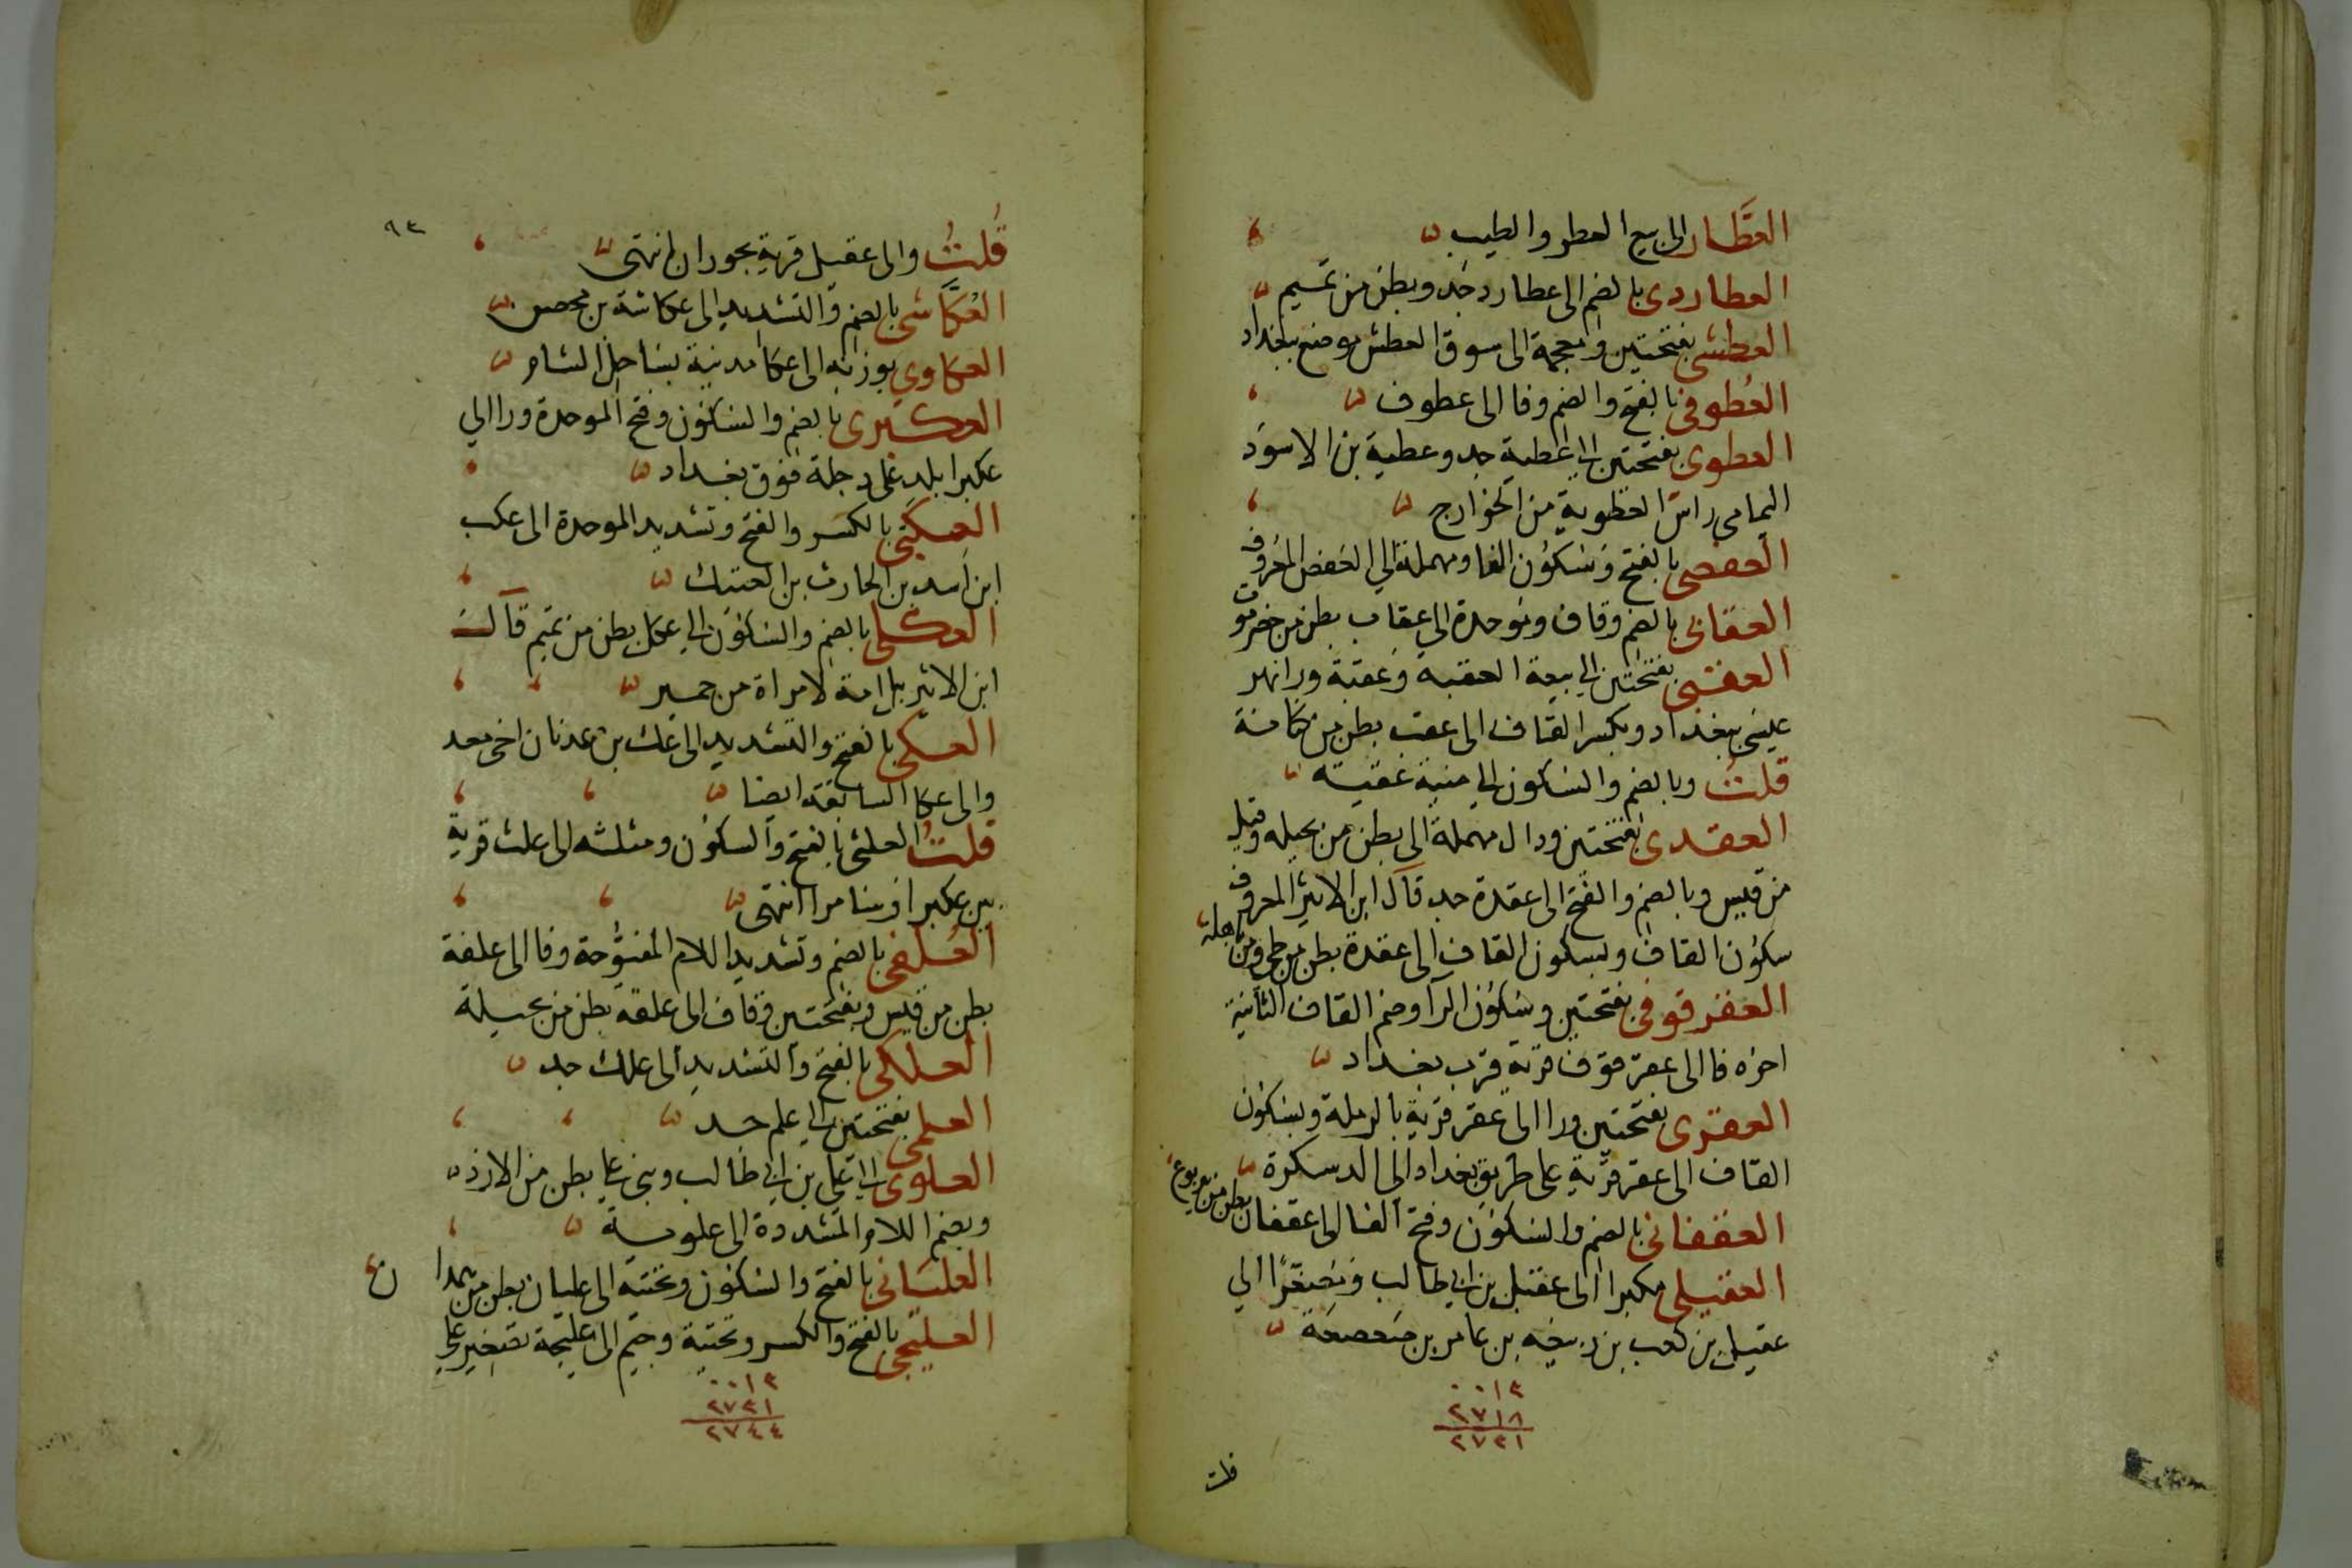 العطَّار الى بيع العطر والطيب
العطاردى بالضم الى عطارد جد وبطن من تميم
العطشى بفتحتين ومعجمة الى سوق العطش موضع ببغداد
العُطوفى بالفتح والضم وفا الى عطوف
العطوى بفتحتين الى عطية جد وعطية بن الاسود
اليمامى راس العطوية من الخوارج
العفصى بالفتح وسكون الفا ومهملة الى العفص المعروف
العقابى بالضم وقاف وموحدة الى عقاب بطن من حضرموت
العقبى بفتحتين الى بيعة العقبه وعقبة ورا نهر
عيسى ببغداد وبكسر القاف الى عقب بطن من كنانة
قلتُ وبالضم والسكون الى منية عقبة
العقدى بفتحتين ودال مهملة الى بطن من بجيله وقيل
من قيس وبالضم والفتح الى عقدة جد قال ابن الاثير المعروف
سكون القاف وبسكون القاف الى عقدة بطن من طى ومن باهلة
العقرقوفى بفتحتين وسكون الرا وضم القاف الثانية
اخره فا الى عقرقوف قرية قرب بغداد
العقرى بفتحتين ورا الى عقر قرية بالرملة وبسكون
القاف الى عقر قرية على طريق بغداد الى الدسكرة
العقفانى بالضم والسكون وفتح الفا الى عقفان بطن من يربوع
العقيلى مكبرا الى عقيل بن ابى طالب ومصغرًا الى
عقيل بن كعب بن ربيعه بن عامر بن صعصعة
٠٠١٣
٢٧١٨
٢٧٣١
قلت
٩٣
قُلتُ والى عقيل قرية بحوران انتهى
العُكَّاشى بالضم والتشديد الى عكاشة بن محصن
العكاوى بوزنه الى عكا مدينة بساحل الشام
العكبرى بالضم والسكون وفتح الموحدة ورا الى
عكبرا بلد على دجلة فوق بغداد
العِكَبّى بالكسر والفتح وتشديد الموحدة الى عكب
ابن اسد بن الحارث بن العتيك
العكلى بالضم والسكون الى عكل بطن من تميم قال
ابن الاثير بل امة لامراة من حمير
العكى بالفتح والتشديد الى عك بن عدنان اخى معد
والى عكا السابقة ايضا
قلتُ العلثى بالفتح والسكون ومثلثه الى علث قرية
بين عكبرا وسامرا انتهى
العُلفى بالضم وتشديد اللام المفتوحة وفا الى علفة
بطن من قيس وبفتحتين وقاف الى علقه بطن من بجيلة
العلكى بالفتح والتشديد الى علك جد
العلمى بفتحتين الى علم جد
العلوى الى على بن ابى طالب وبنى على بطن من الازد
وبضم اللام المشددة الى علوية
العليانى بالفتح والسكون وتحتية الى عليان بطن من همدان
العليجى بالفتح والكسر وتحتية وجيم الى عليجة تصغير على
٠٠١٣
٢٧٣١
٢٧٤٤